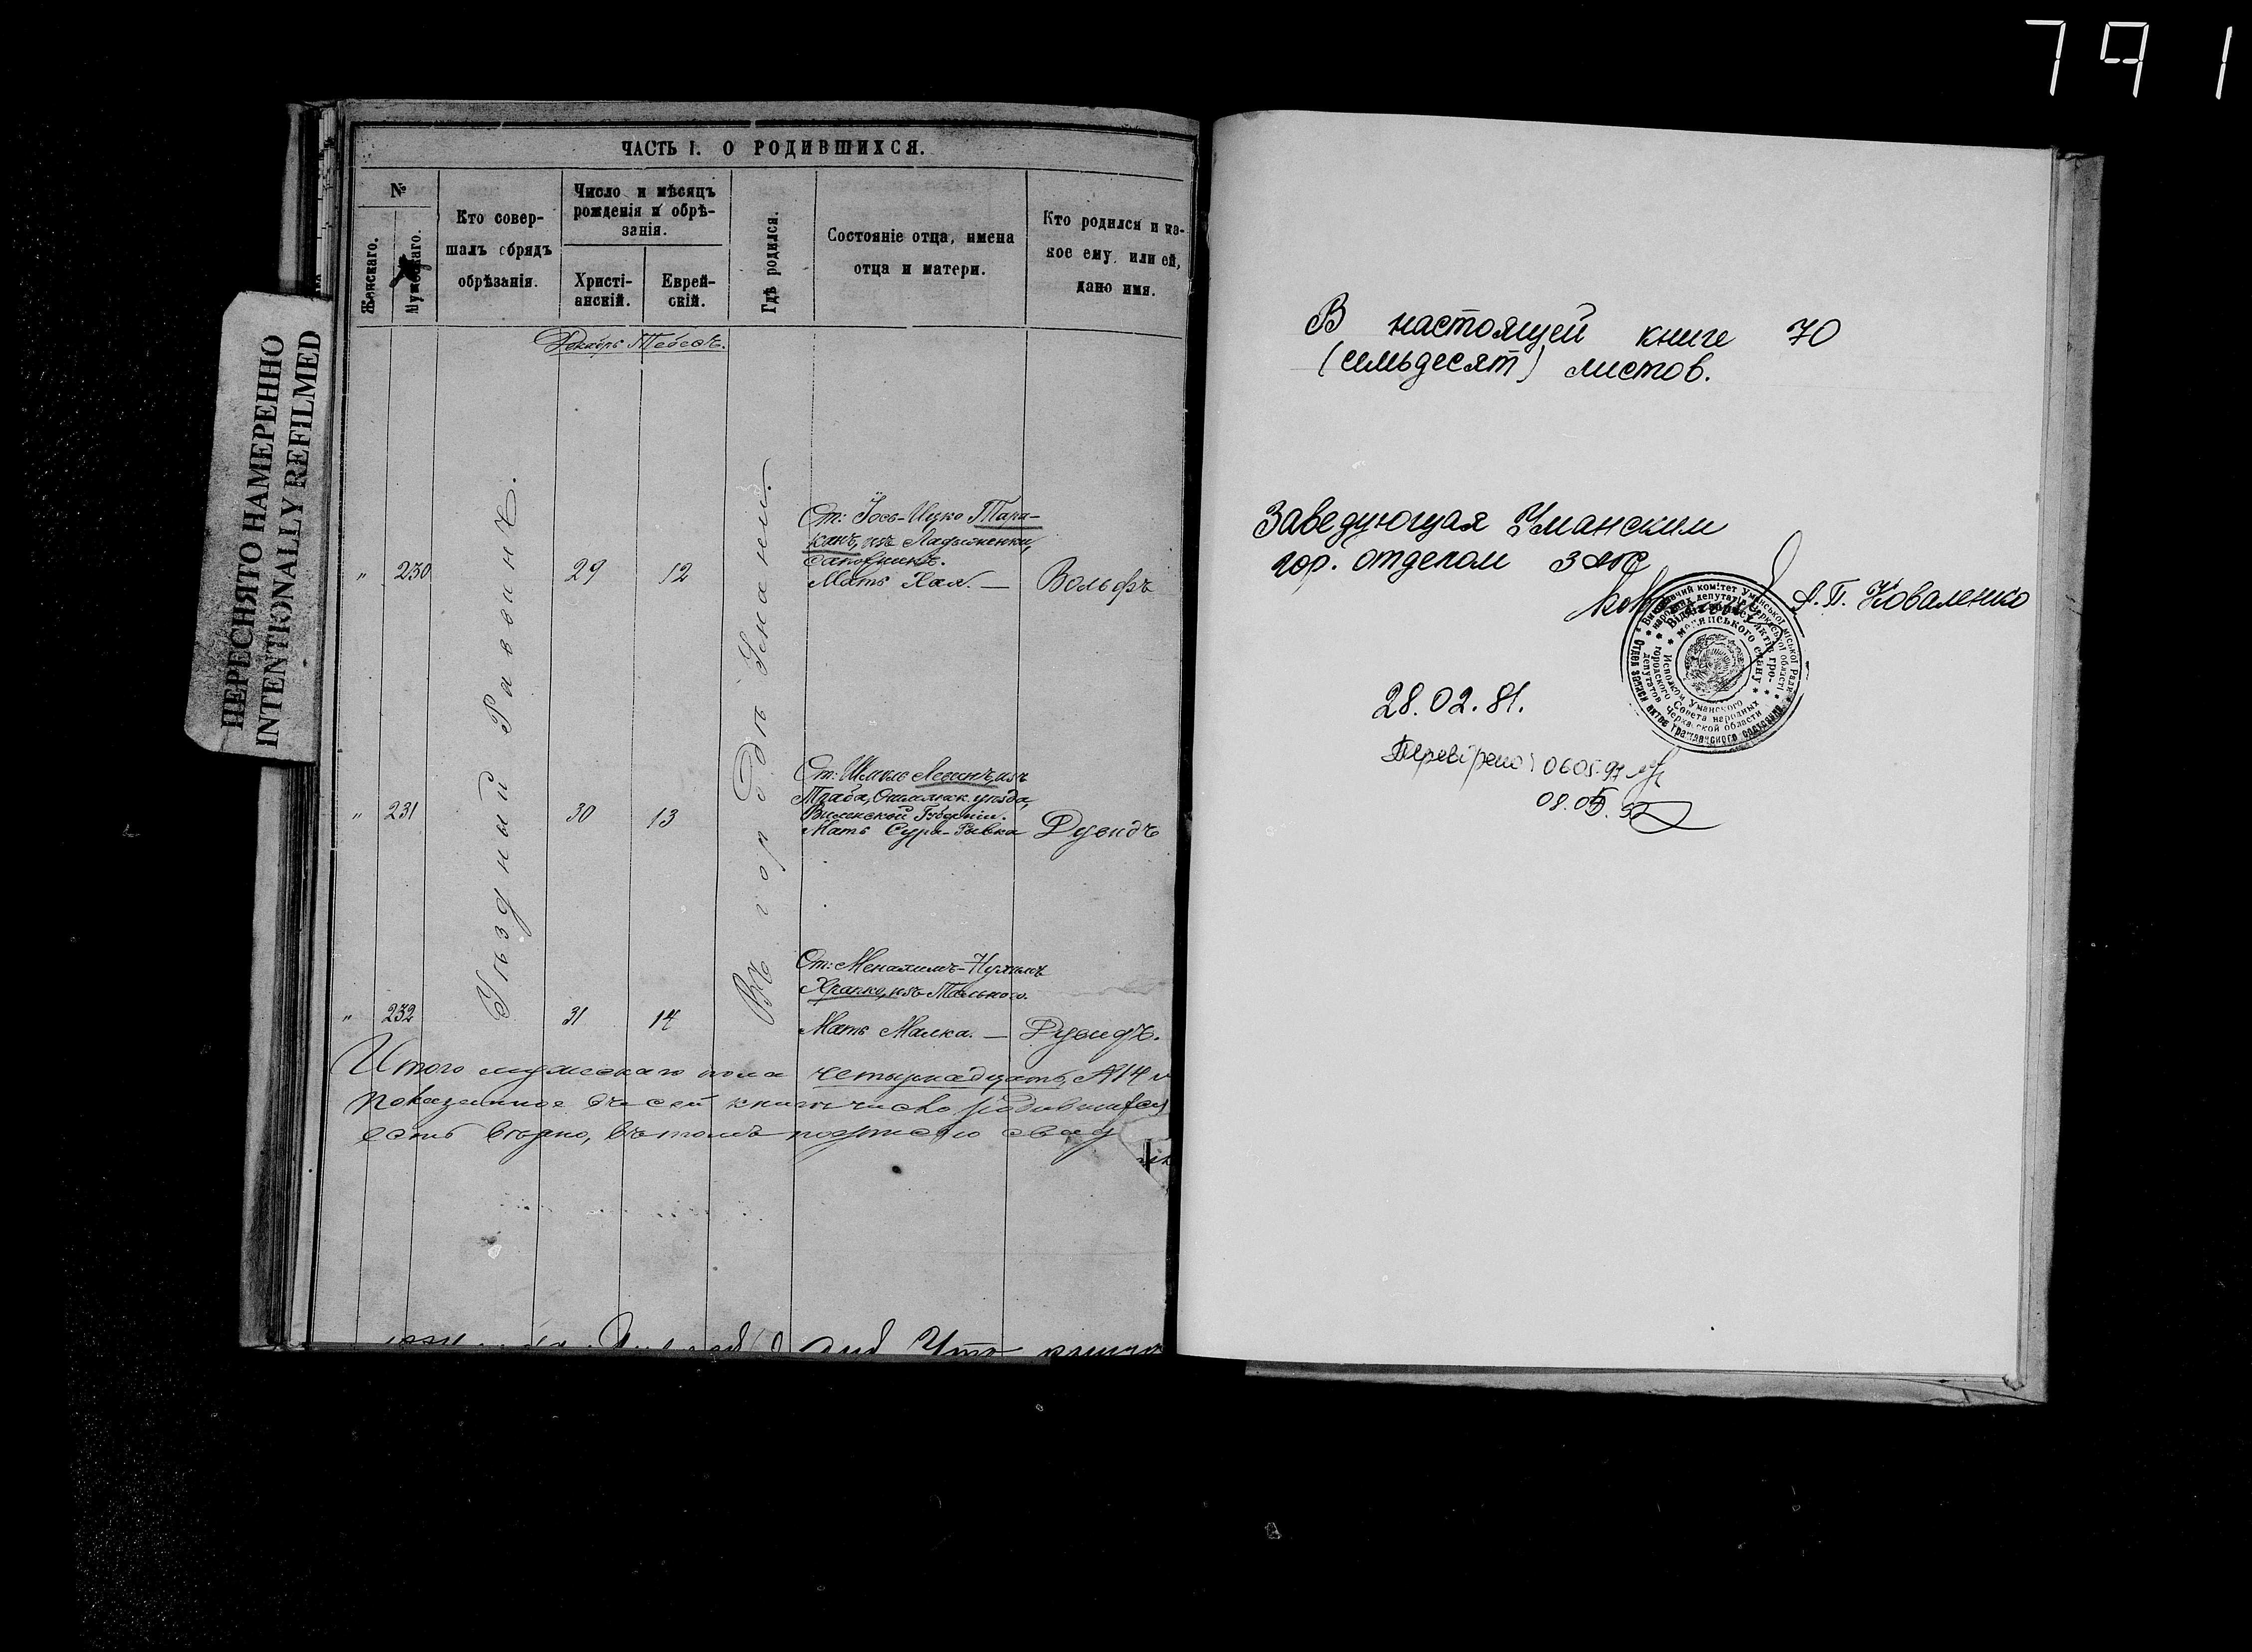 791
ПЕРЕСНЯТО НАМЕРЕННО
INTENTIONALLY REFILMED
ЧАСТЬ I. О РОДИВШИХСЯ.
№
Женскаго.
Мужескаго.
Кто совер-
шалъ обрядъ
обрѣзанія.
Число и мѣсяцъ
рожденія и обрѣ-
занія.
Христі-
анскій.
Еврей-
скій.
Гдѣ родился.
Состояніе отца, имена
отца и матери.
Кто родился и ка-
кое ему, или ей,
дано имя.
Декабрь Тебесъ.
Уѣздный Раввинъ.
Въ городѣ Умани.
От: Іось-Ицко Тара-
канъ, изъ Ладыженки,
" 230 29 12 Мать Хая. — Вольфъ
От: Шмуль Левинъ, изъ
Траба, Ошмянск. уѣзда,
Виленской Губерніи.
" 231 30 13 Мать Сура-Ривка Дувидъ
От: Менахимъ-Нухимъ
Храпко, изъ Тальнаго.
" 232 31 14 Мать Малка. — Дувидъ.
Итого мужескаго пола четырнадцать, №14 и
показанное въ сей книги число родившихся
есть вѣрно, въ томъ
Что книга
В настоящей книге 70
(семьдесят) листов.
Заведующая Уманским
гор. отделом ЗАГС
А. П. Коваленко
Виконавчий комітет Уманської міської Ради
народних депутатів Черкаської області
Відділ реєстрації актів гро-
мадянського стану
Исполком Уманского
городского Совета народных
депутатов Черкасской области
Отдел записи актов гражданского состояния
28.02.81.
Перевірено 06.05.97